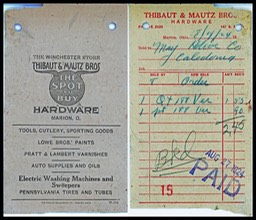 THE WINCHESTER STORE
THIBAUT & MAUTZ BROS.
THE
SPOT
TO
BUY
HARDWARE
MARION, O.
TOOLS, CUTLERY, SPORTING GOODS
LOWE BROS.' PAINTS
PRATT & LAMBERT VARNISHES
AUTO SUPPLIES AND OILS
Electric Washing Machines and
Sweepers
PENNSYLVANIA TIRES AND TUBES
THIBAUT & MAUTZ BROS.
HARDWARE
Marion, Ohio,
Sold to
Caledonia
Order
1 Qt 188 Var
1 188 Var
2.45
AUG 27 1924
PAID
15